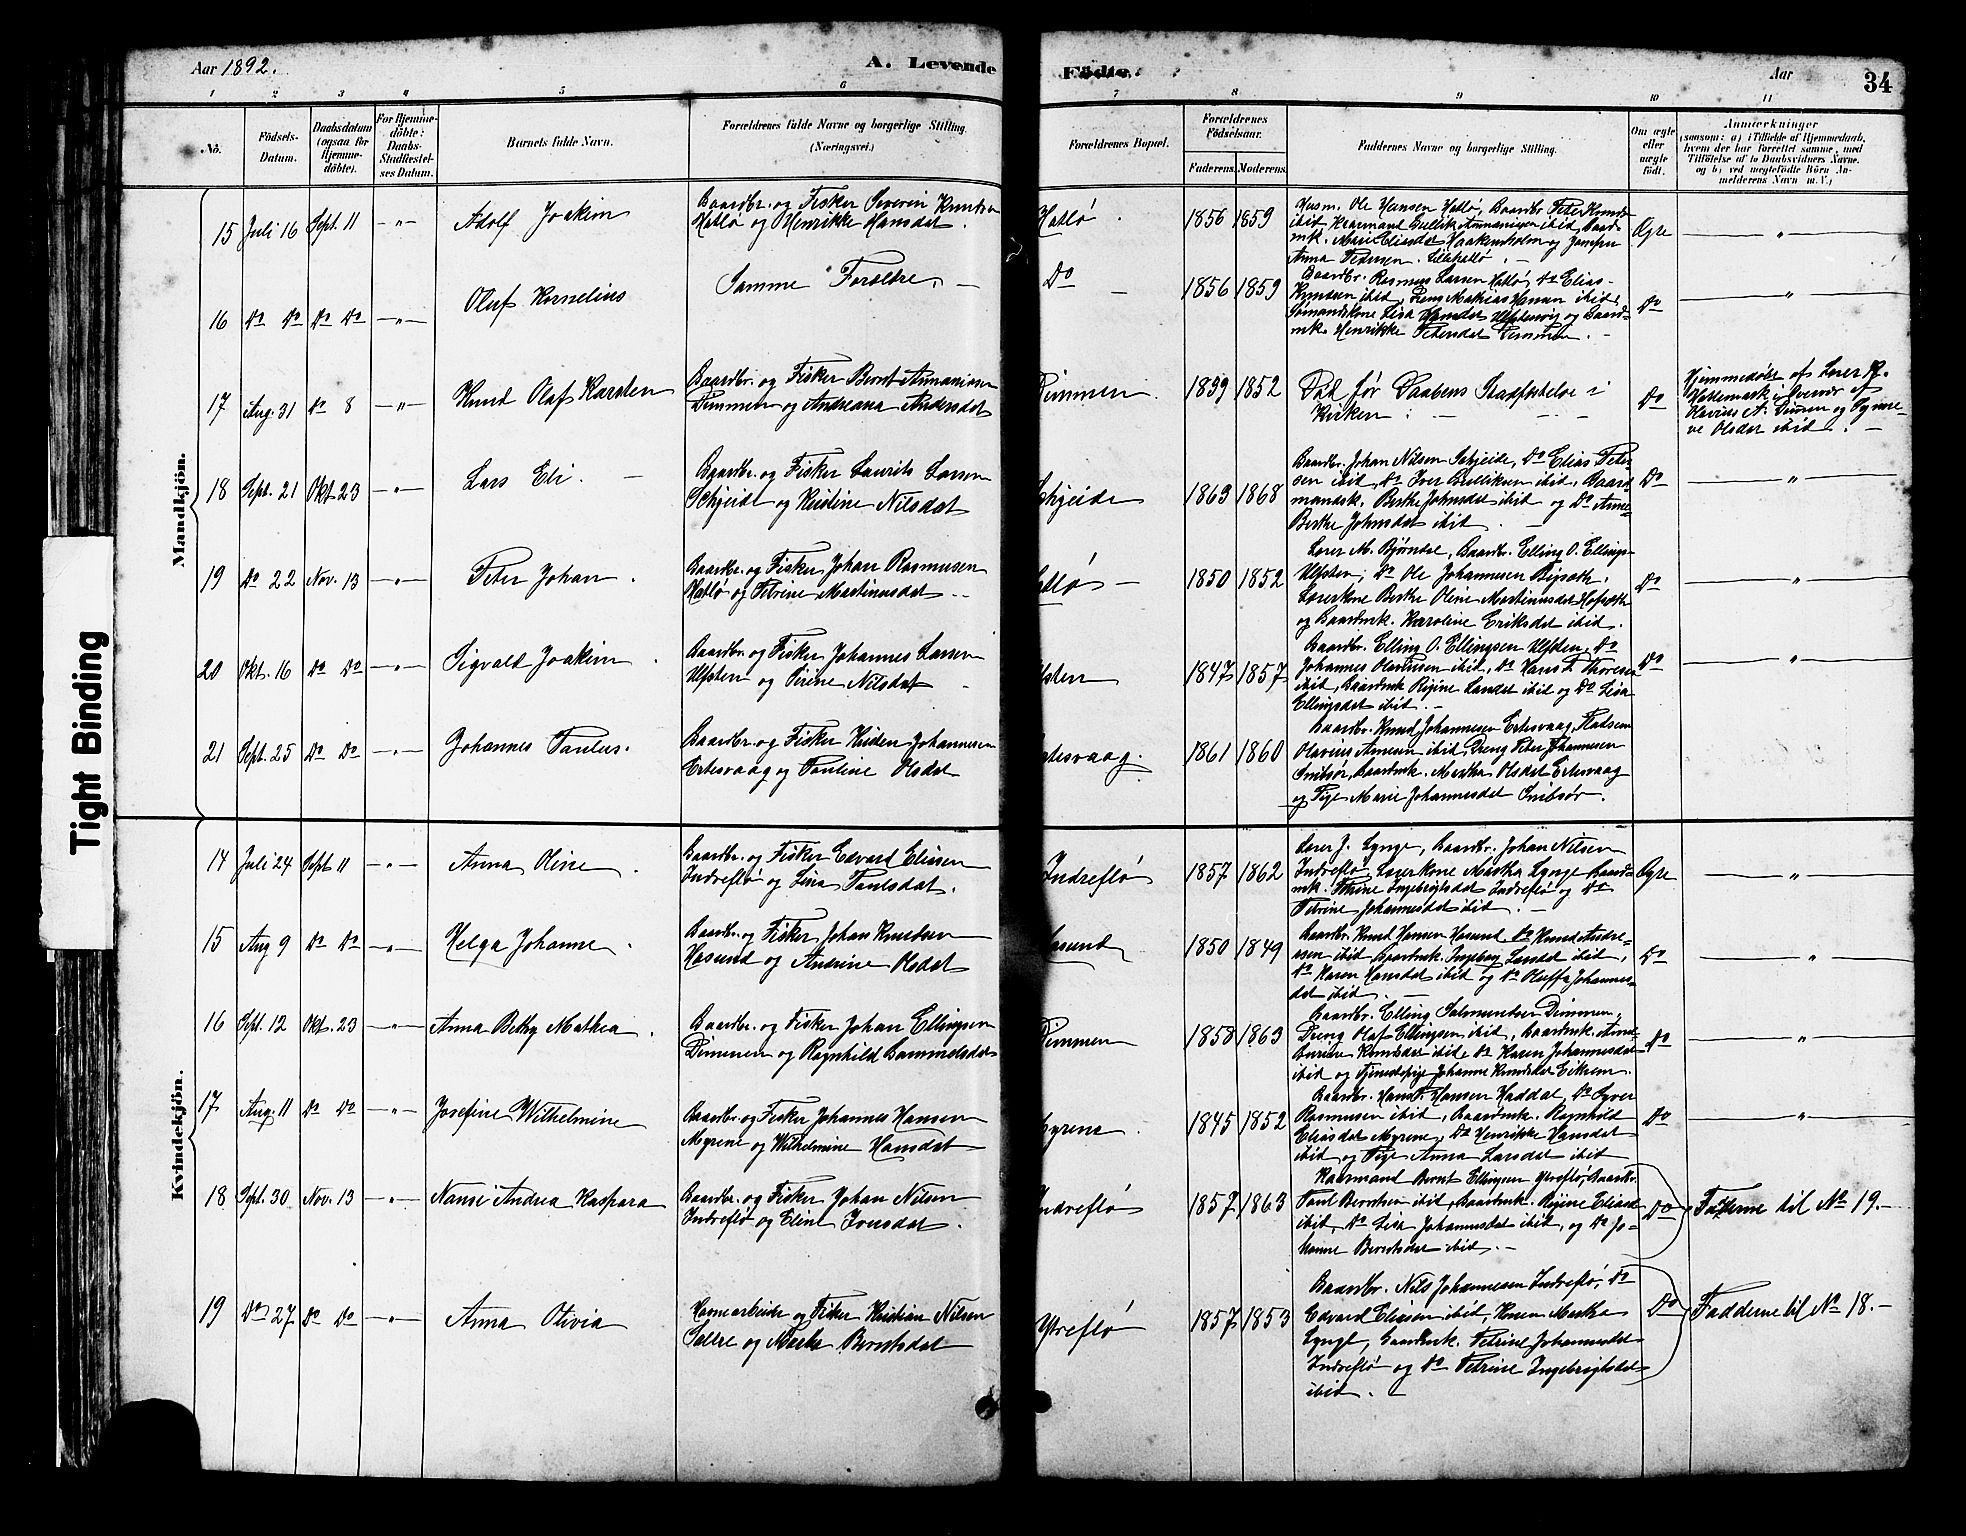 Aar 1892.
A. Levende
Födte.
Aar
34
1 2 3 4 5 6 7 8 9 10 11
No.
Födsels-
Datum.
Daabsdatum
(ogsaa for
Hjemme-
döbte).
For Hjemme-
döbte:
Daabs-
Stadfæstel-
ses Datum.
Barnets fulde Navn.
Forældrenes fulde Navne og borgerlige Stilling.
(Næringsvei.)
Forældrenes Bopæl.
Forældrenes
Födselsaar.
Faderens. Moderens.
Faddernes Navne og borgerlige Stilling.
Om ægte
eller
uægte
födt.
Anmærkninger
(saasom: a) i Tilfælde af Hjemmedaab,
hvem der har forrettet samme, med
Tilföielse af to Daabsvidners Navne,
og b) ved uægtefödte Börn An-
melderens Navn m. V.)
Mandkjön.
15 Juli 16 Sept. 11 Adolf Joakim
Gaardbr. og Fisker Severin Knutsen
Hatlø og Henrikke Hansdat.
Hatlø 1856 1859
Husm. Ole Hansen Hatlø, Gaardbr. Peter Knuds
Ægte
16 Do Do Do Do Oluf Kornelius
Samme Forældre.
Do 1856 1859
Gaardbr. Rasmus Larsen Hatlø, Do Elias
Knudsen ibid, Dreng Mathias Hansen ibid,
Do
17 Aug. 31 Do 8 Knud Olaf Karsten
Gaardbr. og Fisker Bernt Ananiasen
Dimmen og Andreana Andersdat
Dimmen. 1859 1852
Død før Daabens Stadfæstelse i
Kirken
Do
Hjemmedøbt af Lærer P.
18 Sept. 21 Okt 23 Lars Eli.
Gaardbr. og Fisker Laurits Larsen
Schjeide og Kristine Nilsdat
Schjeide 1863 1868
Gaardbr. Johan Nilsen Schjeide, Do Elias Peter-
sen ibid, Do Iver Gulliksen ibid, Gaard-
mandsk. Berthe Johnsdat ibid og Do Anne
Berthe Johnsdat ibid.
Do
19 Do 22 Nov. 13 Peter Johan.
Gaardbr. og Fisker Johan Rasmusen
Hatlø og Petrine Martinusdat
Hatlø 1850 1852
Lærer M. Bjørndal, Gaardbr. Elling O. Ellings-
Ulfsten, Do Ole Johannesen
Lærerkone Berthe Oline Martinusdat
og Gaardmk. Karoline Eriksdat ibid.
Do
20 Okt. 16 Do Do Sigvald Joakim
Gaardbr. og Fisker Johannes Larsen
Ulfsten og Sirene Nilsdat
Ulfsten 1847 1857
Gaardbr. Elling O. Ellingsen Ulfsten, Do
Johannes Olausen ibid, Do Hans P. Thoresen
ibid, Gaardmk Regine Larsdat ibid og Do Lisa
Ellingsdat ibid.
Do
21 Sept. 25 Do Do Johannes Paulus.
Gaardbr. og Fisker Johannesen
Ertesvaag og Pauline Olsdat
Ertesvaag. 1861 1860
Gaardbr. Knud Johannesen Ertesvaag, Pladsm
Olavius Arnesen ibid, Dreng Peter Johannesen
Snibsør, Gaardmk. Martha Olsdat Ertesvaag
og Pige Marie Johannesdat Snibsør.
Kvindekjön.
14 Juli 24 Sept 11 Anna Oline.
Gaardbr. og Fisker Edvard Eliasen
Indreflø og Lina Paulsdat.
Indreflø 1857 1862
Lærer J. Lynge, Gaardbr. Johan Nilsen
Indreflø, Lærerkone Martha Lynge Gaard-
mk. Petrine Ingebrigtsdat Indreflø og Do
Petrine Johannesdat ibid.
Ægte
15 Aug 9 Do Do Helga Johanne.
Gaardbr. og Fisker Johan Knudsen
Hasund og Andrine Olsdat
Hasund 1850 1849
Gaardbr. Knud Hansen Hasund, Do Knud Andre-
asen ibid Gaardmk. Ingeborg Larsdat ibid,
Do Karen Hansdat ibid og Do Oluffa Johannes-
dat ibid.
Do
16 Sept. 12 Okt. 23 Anna Bethy Mathea.
Gaardbr. og Fisker Johan Ellingsen
Dimmen og Ragnhild Gammelsdat
Dimmen 1858 1863
Gaardbr. Elling Salmundsen Dimmen,
Dreng Olaf Ellingsen ibid, Gaardmk.
Knudsdat ibid, Do Karen Johannesdat
ibid og Tjenestepige Johanne Knudsdat Eiksem.
Do
17 Aug. 11 Do Do Josefine Wilhelmine
Gaardbr. og Fisker Johannes Hansen
Myrene og Wilhelmine Hansdat
Myrene. 1845 1852
Gaardbr. Hans Hansen Haddal, Do Syver
Rasmusen ibid, Gaardmk. Ragnhild
Eliasdat Myrene, Do Henrikke Hansdat
ibid og Pige Anna Larsdat ibid
Do
18 Sept. 30 Nov. 13 Nansi Andrea Kaspara
Gaardbr. og Fisker Johan Nilsen
Indreflø og Eline Ivarsdat.
Indreflø 1857 1863
Kaarmand Bernt Ellingsen Ytreflø, Gaardbr.
Paul Berntsen ibid, Gaardmk. Regine Eliasd
ibid, Do Lisa Johannesdat ibid, og Do Jo-
hanne Berntsdat ibid.
Do
Fadderne til No 19.
19 Do 27 Do Do Anna Olivia
Havnearbeider og Fisker Kristian Nilsen
og Marthe Berntsdat
Ytreflø 1857 1853
Gaardbr. Nils Johannesen Indreflø, Do
Edvard Eliasen ibid, Konen Martha
Lynge, Gaardmk. Petrine Johannesdat
Indreflø og Do Petrine Ingebrigtsdat
ibid.
Do
Fadderne til No 18.
Tight Binding